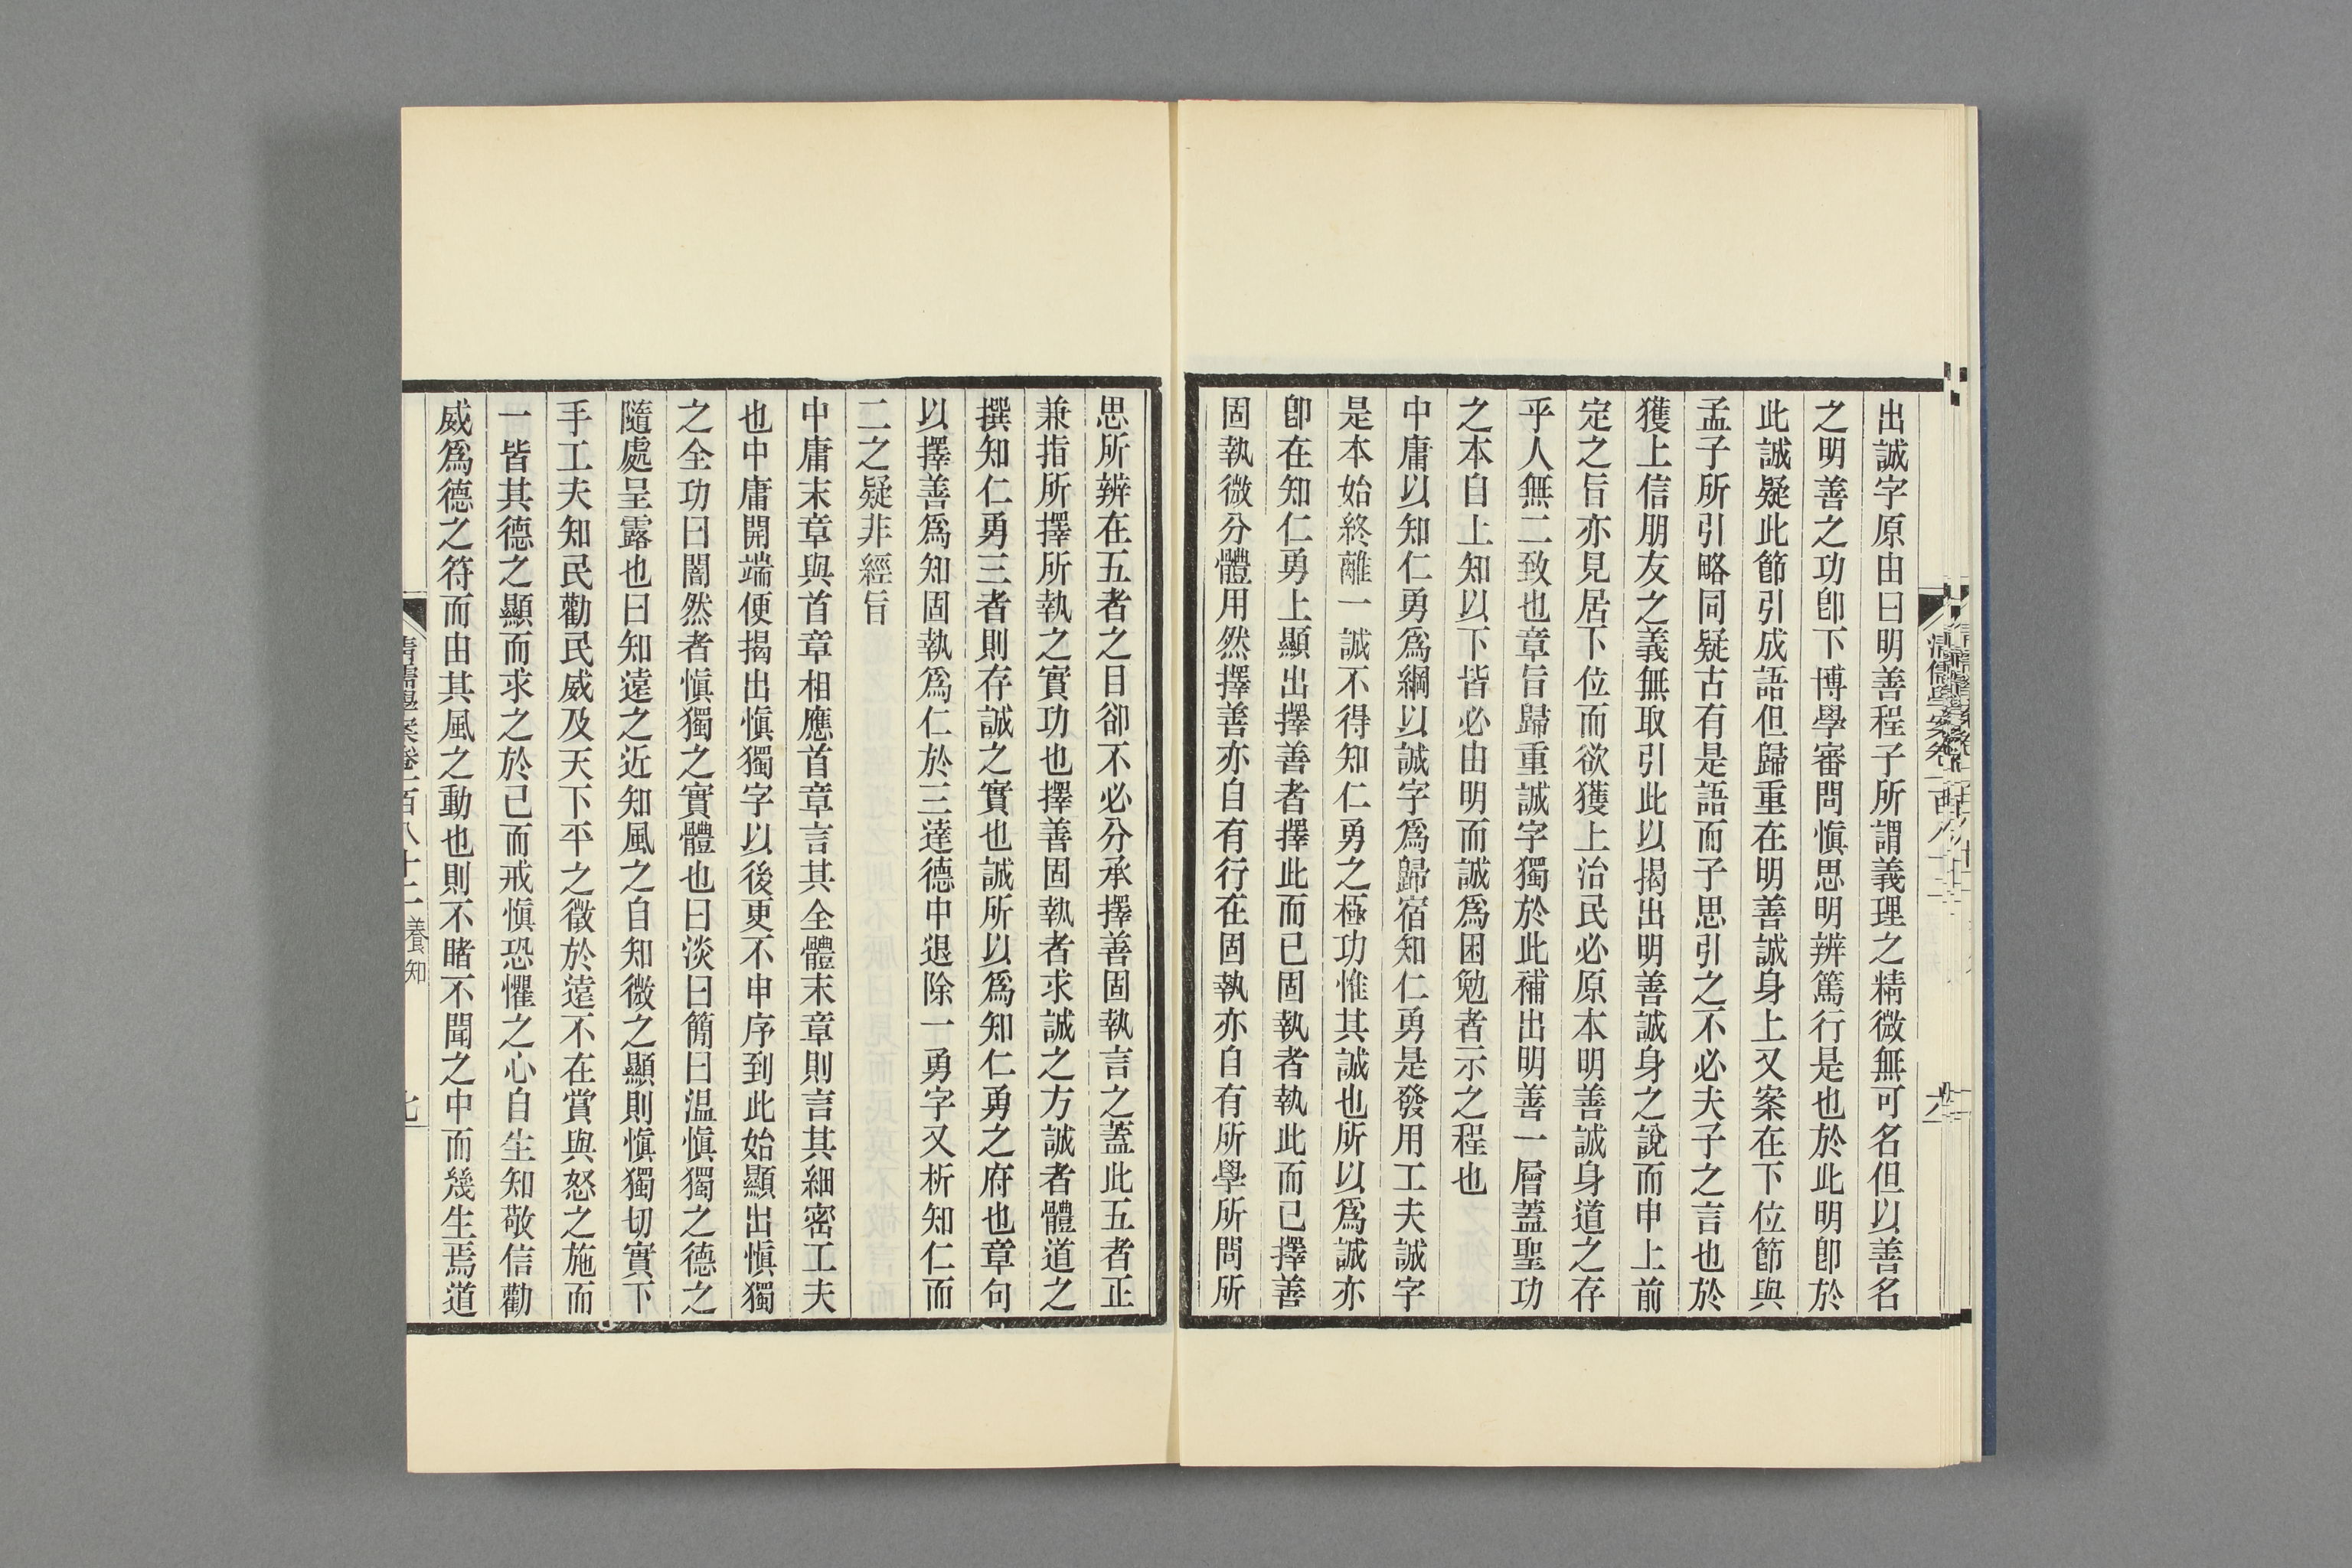 出誠字原由曰明善程子所謂義理之精微無可名但以善名
之明善之功卽下博學審問愼思明辨篤行是也於此明卽於
此誠疑此節引成語但歸重在明善誠身上又案在下位節與
孟子所引略同疑古有是語而子思引之不必夫子之言也於
獲上信朋友之義無取引此以揭出明善誠身之說而申上前
定之旨亦見居下位而欲獲上治民必原本明善誠身道之存
乎人無二致也章旨歸重誠字獨於此補出明善一層蓋聖功
之本自上知以下皆必由明而誠爲困勉者示之程也
中庸以知仁勇爲綱以誠字爲歸宿知仁勇是發用工夫誠字
是本始終離一誠不得知仁勇之極功惟其誠也所以爲誠亦
卽在知仁勇上顯出擇善者擇此而已固執者執此而已擇善
固執微分體用然擇善亦自有行在固執亦自有所學所問所
思所辨在五者之目卻不必分承擇善固執言之蓋此五者正
兼指所擇所執之實功也擇善固執者求誠之方誠者體道之
撰知仁勇三者則存誠之實也誠所以爲知仁勇之府也章句
以擇善爲知固執爲仁於三達德中退除一勇字又析知仁而
二之疑非經旨
中庸末章與首章相應首章言其全體末章則言其細密工夫
也中庸開端便揭出愼獨字以後更不申序到此始顯出愼獨
之全功曰闇然者愼獨之實體也曰淡曰簡曰温愼獨之德之
隨處呈露也曰知遠之近知風之自知微之顯則愼獨切實下
手工夫知民勸民威及天下平之徵於遠不在賞與怒之施而
一皆其德之顯而求之於己而戒愼恐懼之心自生知敬信勸
威爲德之符而由其風之動也則不睹不聞之中而幾生焉道
清儒學案卷一百八十二 養知
七